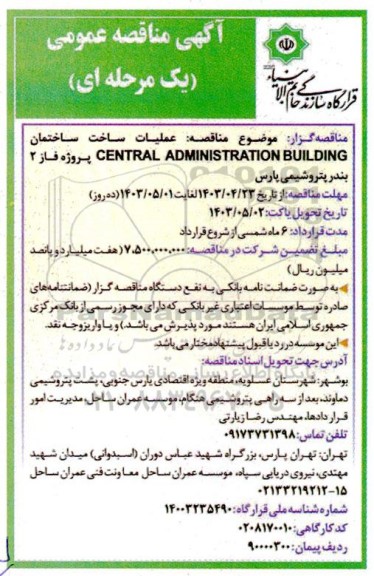 آگهی مناقصه عمومی
(یک مرحله ای)
قرارگاه سازندگی خاتم الانبیاء
مناقصه گزار: موضوع مناقصه: عملیات ساخت ساختمان
CENTRAL ADMINISTRATION BUILDING پروژه فاز ۲
بندر پتروشیمی پارس
مهلت مناقصه: از تاریخ ۱۴۰۳/۰۴/۲۳ لغایت ۱۴۰۳/۰۵/۰۱ (ده روز)
تاریخ تحویل پاکت: ۱۴۰۳/۰۵/۰۲
مدت قرارداد: ۶ ماه شمسی از شروع قرارداد
مبلغ تضمین شرکت در مناقصه: ۷,۵۰۰,۰۰۰,۰۰۰ (هفت میلیارد و پانصد
میلیون ریال)
به صورت ضمانت نامه بانکی به نفع دستگاه مناقصه گزار (ضمانتنامه‌های
صادره توسط موسسات اعتباری غیر بانکی که دارای مجوز رسمی از بانک مرکزی
جمهوری اسلامی ایران هستند مورد پذیرش می باشد.) و یا واریز وجه نقد
این موسسه در رد یا قبول پیشنهاد مختار می باشد
آدرس جهت تحویل اسناد مناقصه:
بوشهر: شهرستان عسلویه، منطقه ویژه اقتصادی پارس جنوبی، پشت پتروشیمی
دماوند، بعد از سه راهی پتروشیمی هنگام، موسسه عمران ساحل، مدیریت امور
قراردادها، مهندس رضا زیارتی
تلفن تماس: ۰۹۱۷۳۷۳۱۳۹۸
تهران: تهران پارس، بزرگراه شهید عباس دوران (اسبدوانی) میدان شهید
مهتدی، نیروی دریایی سپاه، موسسه عمران ساحل معاونت فنی عمران ساحل
۰۲۱۳۳۲۱۹۲۱۲-۱۵
شماره شناسه ملی قرارگاه: ۱۴۰۰۳۲۳۵۴۹۰
کد کارگاهی: ۰۲۰۸۱۷۰۰۱۰
ردیف پیمان: ۹۰۰۰۰۳۰۰